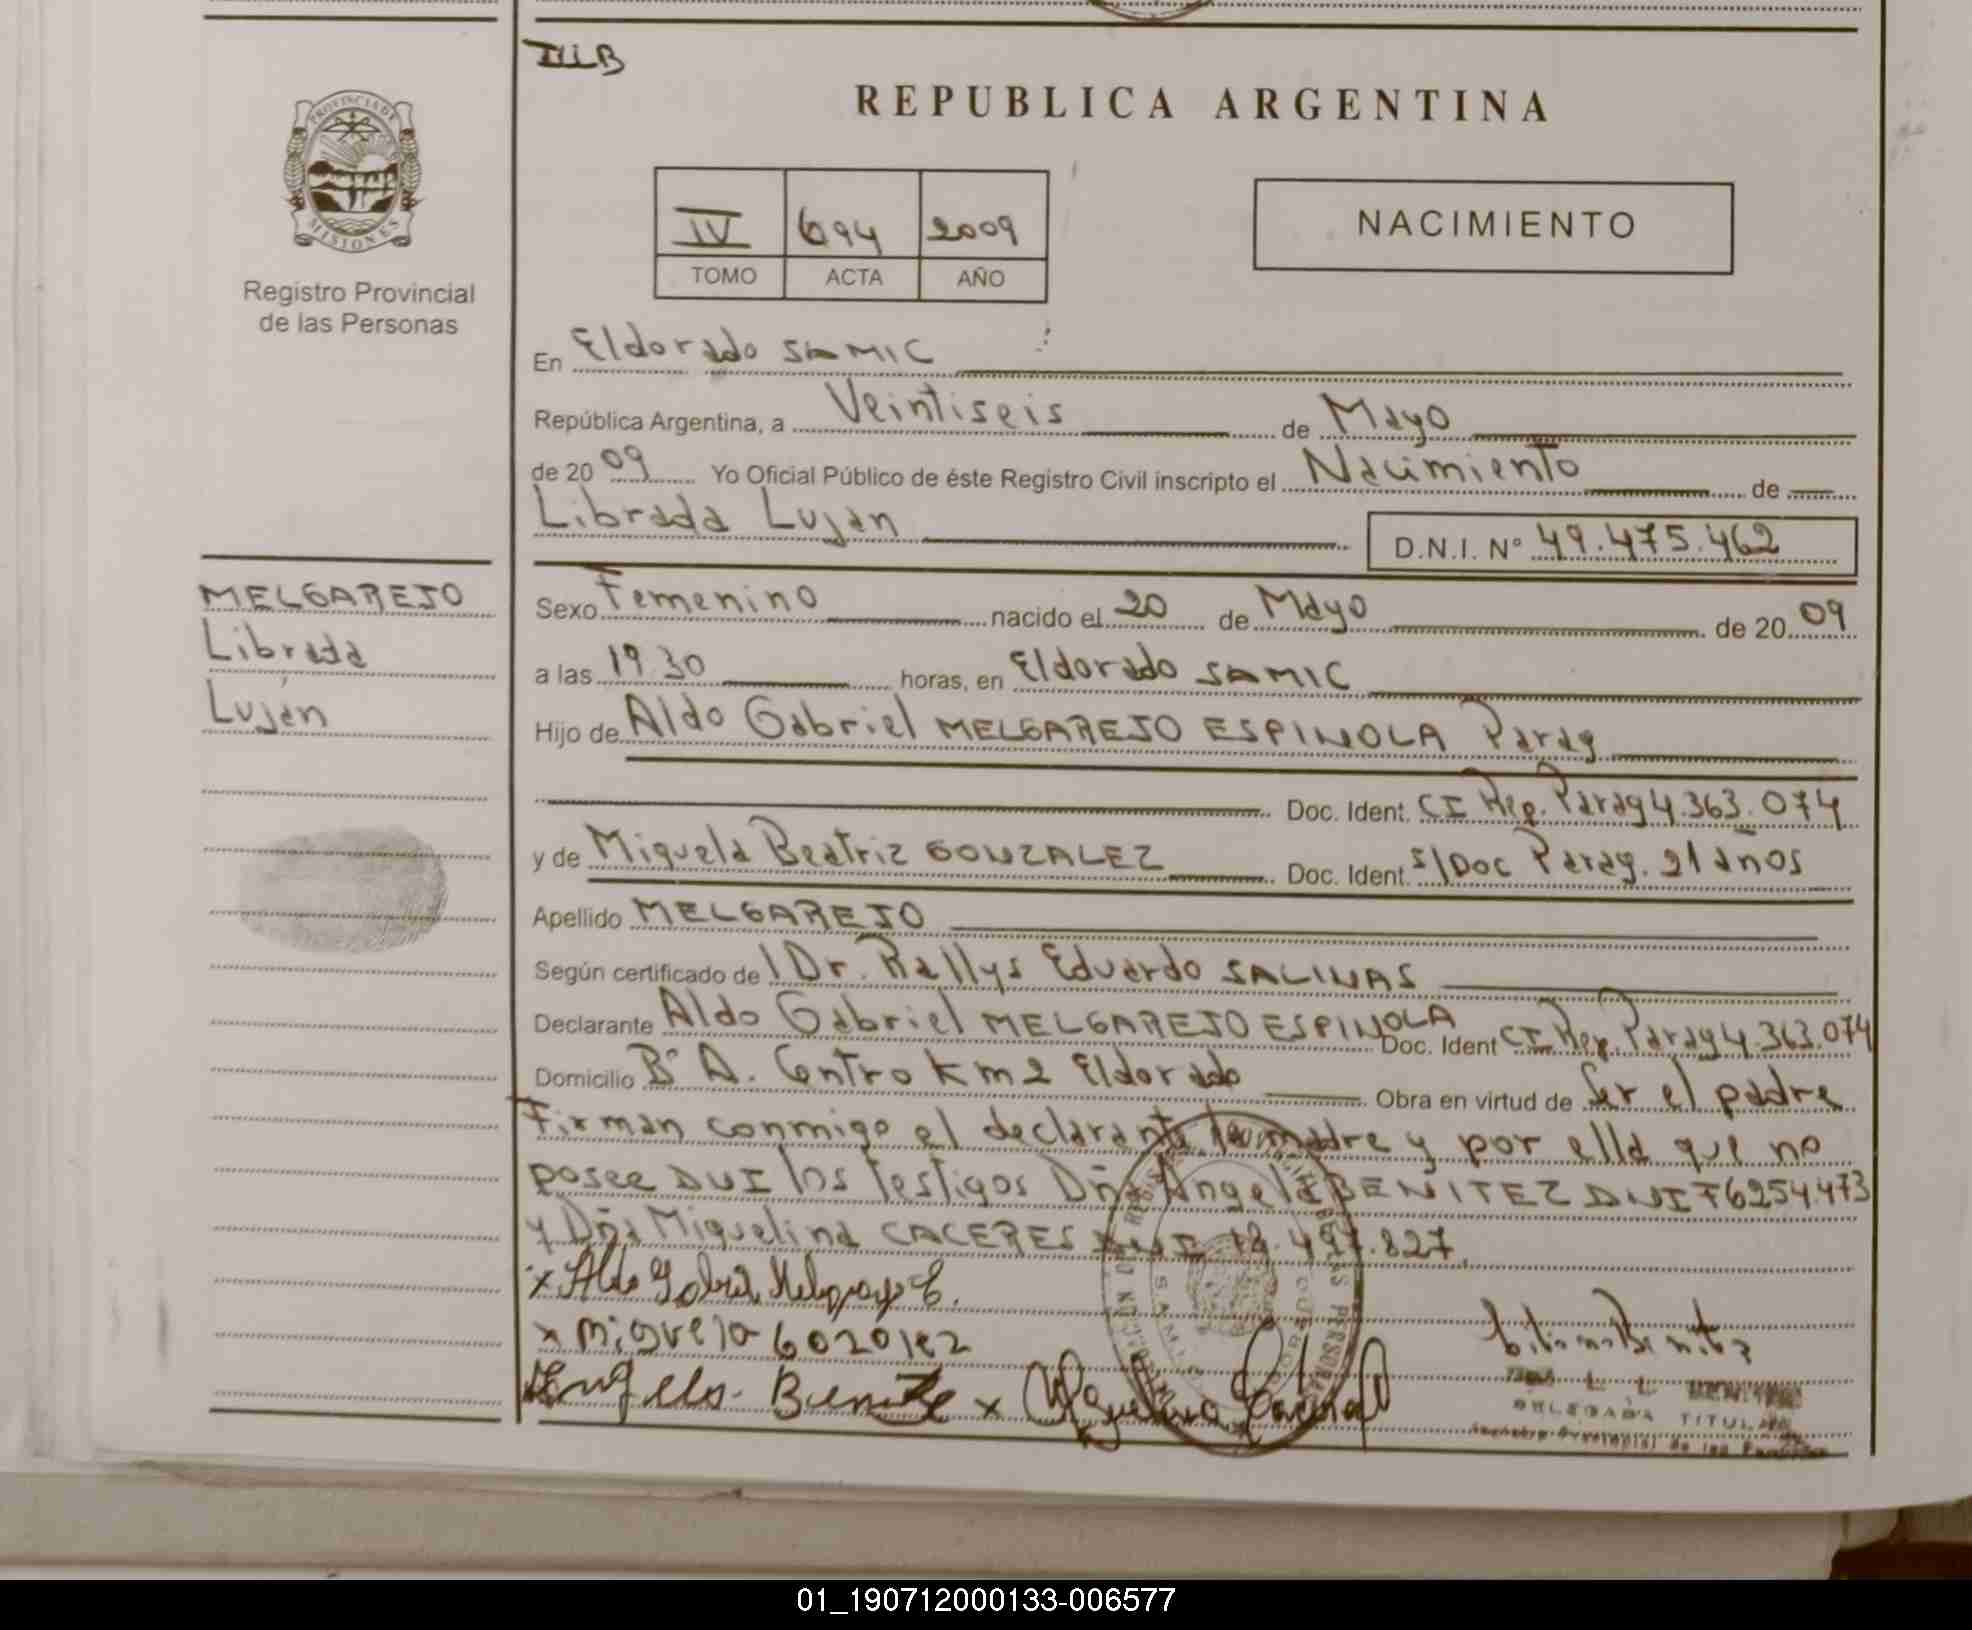 IIIB
REPUBLICA ARGENTINA
PROVINCIA DE
MISIONES
Registro Provincial
de las Personas
IV 694 2009
TOMO ACTA AÑO
NACIMIENTO
En Eldorado SAMIC
República Argentina, a Veintiseis de Mayo
de 20 09 Yo Oficial Público de éste Registro Civil inscripto el Nacimiento de
Librada Lujan D.N.I. Nº 49.475.462
MELGAREJO
Librada
Luján
Sexo Femenino nacido el 20 de Mayo de 20 09
a las 19.30 horas, en Eldorado SAMIC
Hijo de Aldo Gabriel MELGAREJO ESPINOLA Parag
Doc. Ident. CI Rep. Parag 4.363.074
y de Miguela Beatriz GONZALEZ Doc. Ident. s/Doc Parag. 21 años
Apellido MELGAREJO
Según certificado de l Dr. Rallys Eduardo SALINAS
Declarante Aldo Gabriel MELGAREJO ESPINOLA Doc. Ident CI Rep. Parag 4.363.074
Domicilio Bº A. Centro Km 2 Eldorado Obra en virtud de Ser el padre
Firman conmigo el declarante la madre y por ella que no
posee DNI los testigos Dña Angela BENITEZ DNI F6254.473
y Dña Miguelina CACERES DNI 12.497.827.
x Aldo Gabriel Melgarejo E.
x Miguela Gonzalez
Angela Benitez x
DELEGADA TITULAR
Registro Provincial de las Personas
01_190712000133-006577